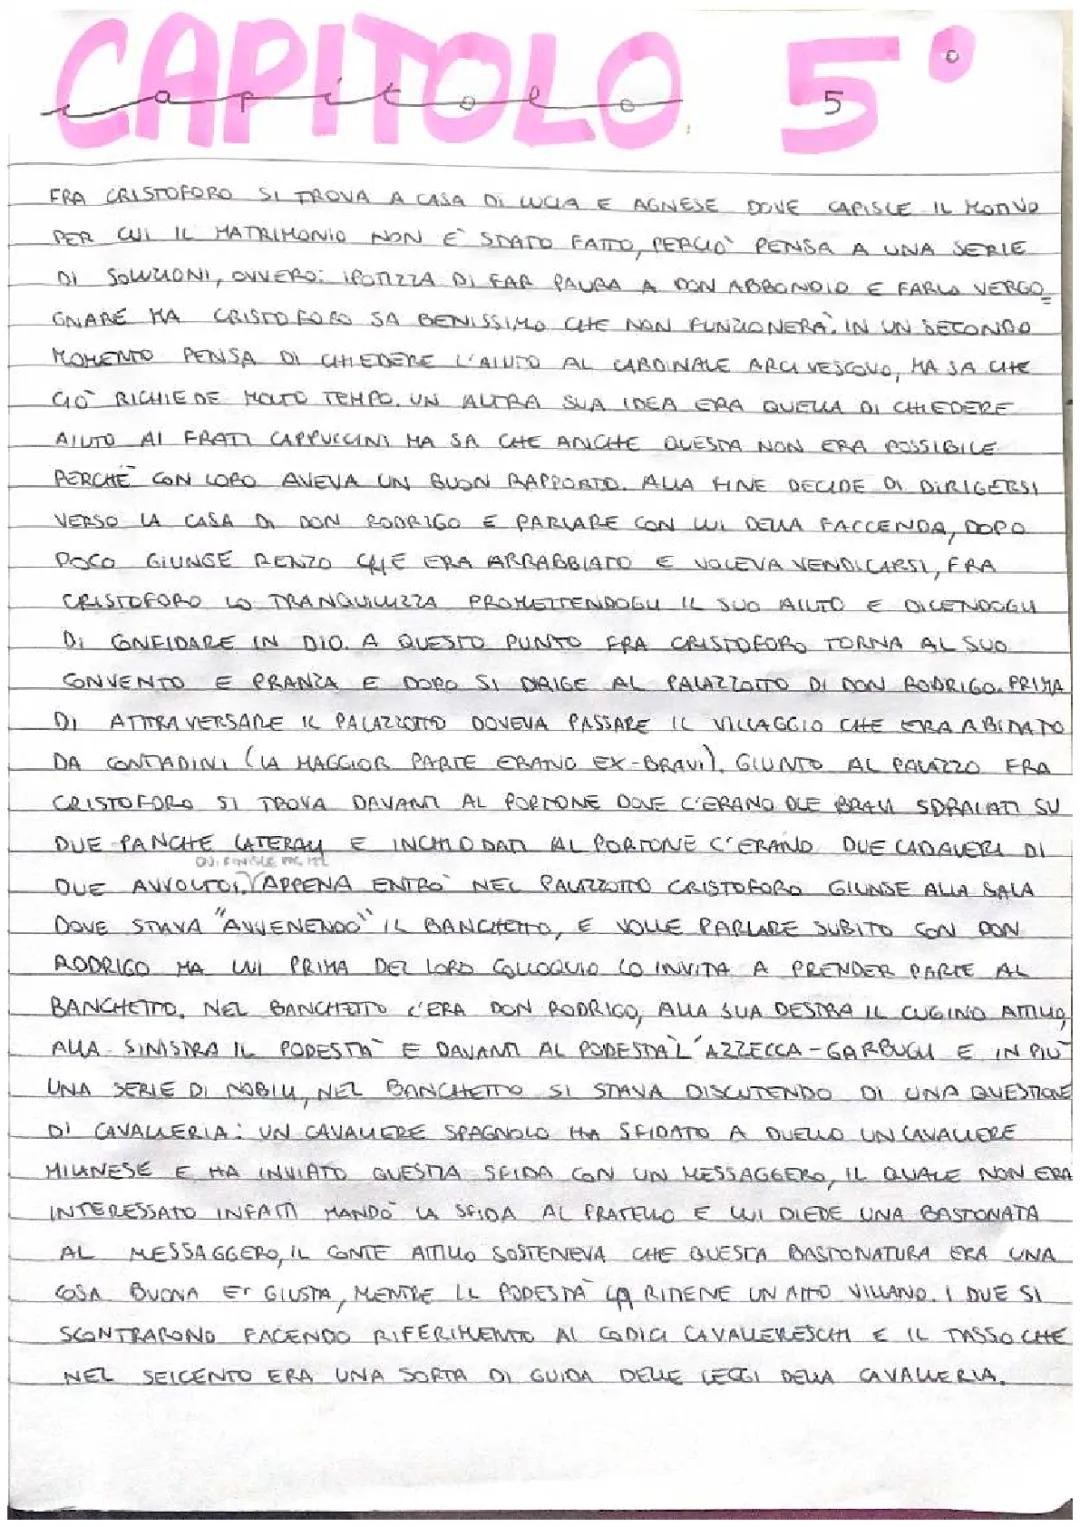 CAPITOLO 5°
capitolo 5
FRA CRISTOFORO SI TROVA A CASA DI LUCIA E AGNESE DOVE CAPISCE IL MOTIVO
PER CUI IL MATRIMONIO NON E' STATO FATTO, PERCIO' PENSA A UNA SERIE
DI SOLUZIONI, OVVERO: IPOTIZZA DI FAR PAURA A DON ABBONDIO E FARLO VERGO_
GNARE MA CRISTOFORO SA BENISSIMO CHE NON FUNZIONERA'. IN UN SECONDO
MOMENTO PENSA DI CHIEDERE L'AIUTO AL CARDINALE ARCIVESCOVO, MA SA CHE
CIO' RICHIEDE MOLTO TEMPO. UN ALTRA SUA IDEA ERA QUELLA DI CHIEDERE
AIUTO AI FRATI CAPPUCCINI MA SA CHE ANCHE QUESTA NON ERA POSSIBILE
PERCHE' CON LORO AVEVA UN BUON RAPPORTO. ALLA FINE DECIDE DI DIRIGERSI
VERSO LA CASA DI DON RODRIGO E PARLARE CON LUI DELLA FACCENDA, DOPO
POCO GIUNGE RENZO CHE ERA ARRABBIATO E VOLEVA VENDICARSI, FRA
CRISTOFORO LO TRANQUILLIZZA PROMETTENDOGLI IL SUO AIUTO E DICENDOGLI
DI CONFIDARE IN DIO. A QUESTO PUNTO FRA CRISTOFORO TORNA AL SUO
CONVENTO E PRANZA E DOPO SI DIRIGE AL PALAZZOTTO DI DON RODRIGO. PRIMA
DI ATTRAVERSARE IL PALAZZOTTO DOVEVA PASSARE IL VILLAGGIO CHE ERA ABITATO
DA CONTADINI (LA MAGGIOR PARTE ERANO EX-BRAVI). GIUNTO AL PALAZZO FRA
CRISTOFORO SI TROVA DAVANTI AL PORTONE DOVE C'ERANO DUE BRAVI SDRAIATI SU
DUE PANCHE LATERALI E INCHIODATI AL PORTONE C'ERANO DUE CADAVERI DI
DUE AVVOLTOI. APPENA ENTRO' NEL PALAZZOTTO CRISTOFORO GIUNSE ALLA SALA
DOVE STAVA "AVVENENDO" IL BANCHETTO, E VOLLE PARLARE SUBITO CON DON
RODRIGO MA LUI PRIMA DEL LORO COLLOQUIO LO INVITA A PRENDER PARTE AL
BANCHETTO. NEL BANCHETTO C'ERA DON RODRIGO, ALLA SUA DESTRA IL CUGINO ATTILIO,
ALLA SINISTRA IL PODESTA' E DAVANTI AL PODESTA' L'AZZECCA-GARBUGLI E IN PIU'
UNA SERIE DI NOBILI, NEL BANCHETTO SI STAVA DISCUTENDO DI UNA QUESTIONE
DI CAVALLERIA: UN CAVALIERE SPAGNOLO HA SFIDATO A DUELLO UN CAVALIERE
MILANESE E HA INVIATO QUESTA SFIDA CON UN MESSAGGERO, IL QUALE NON ERA
INTERESSATO INFATTI MANDO' LA SFIDA AL FRATELLO E LUI DIEDE UNA BASTONATA
AL MESSAGGERO, IL CONTE ATTILIO SOSTENEVA CHE QUESTA BASTONATURA ERA UNA
COSA BUONA ET GIUSTA, MENTRE IL PODESTA' LA RITIENE UN ATTO VILLANO. I DUE SI
SCONTRARONO FACENDO RIFERIMENTO AI CODICI CAVALLERESCHI E IL TASSO CHE
NEL SEICENTO ERA UNA SORTA DI GUIDA DELLE LEGGI DELLA CAVALLERIA.